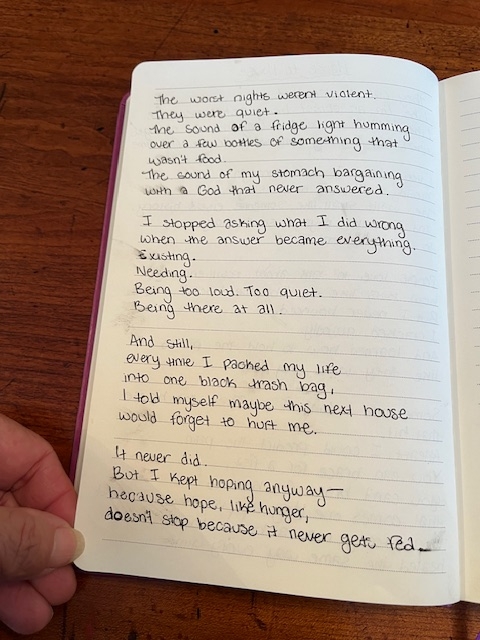 The worst nights werent violent.
They were quiet.
The sound of a fridge light humming
over a few bottles of something that
wasn't food.
The sound of my stomach bargaining
with a God that never answered.
I stopped asking what I did wrong
when the answer became everything.
Existing.
Needing.
Being too loud. Too quiet.
Being there at all.
And still,
every time I packed my life
into one black trash bag,
I told myself maybe this next house
would forget to hurt me.
It never did.
But I kept hoping anyway—
because hope, like hunger,
doesn't stop because it never gets fed.